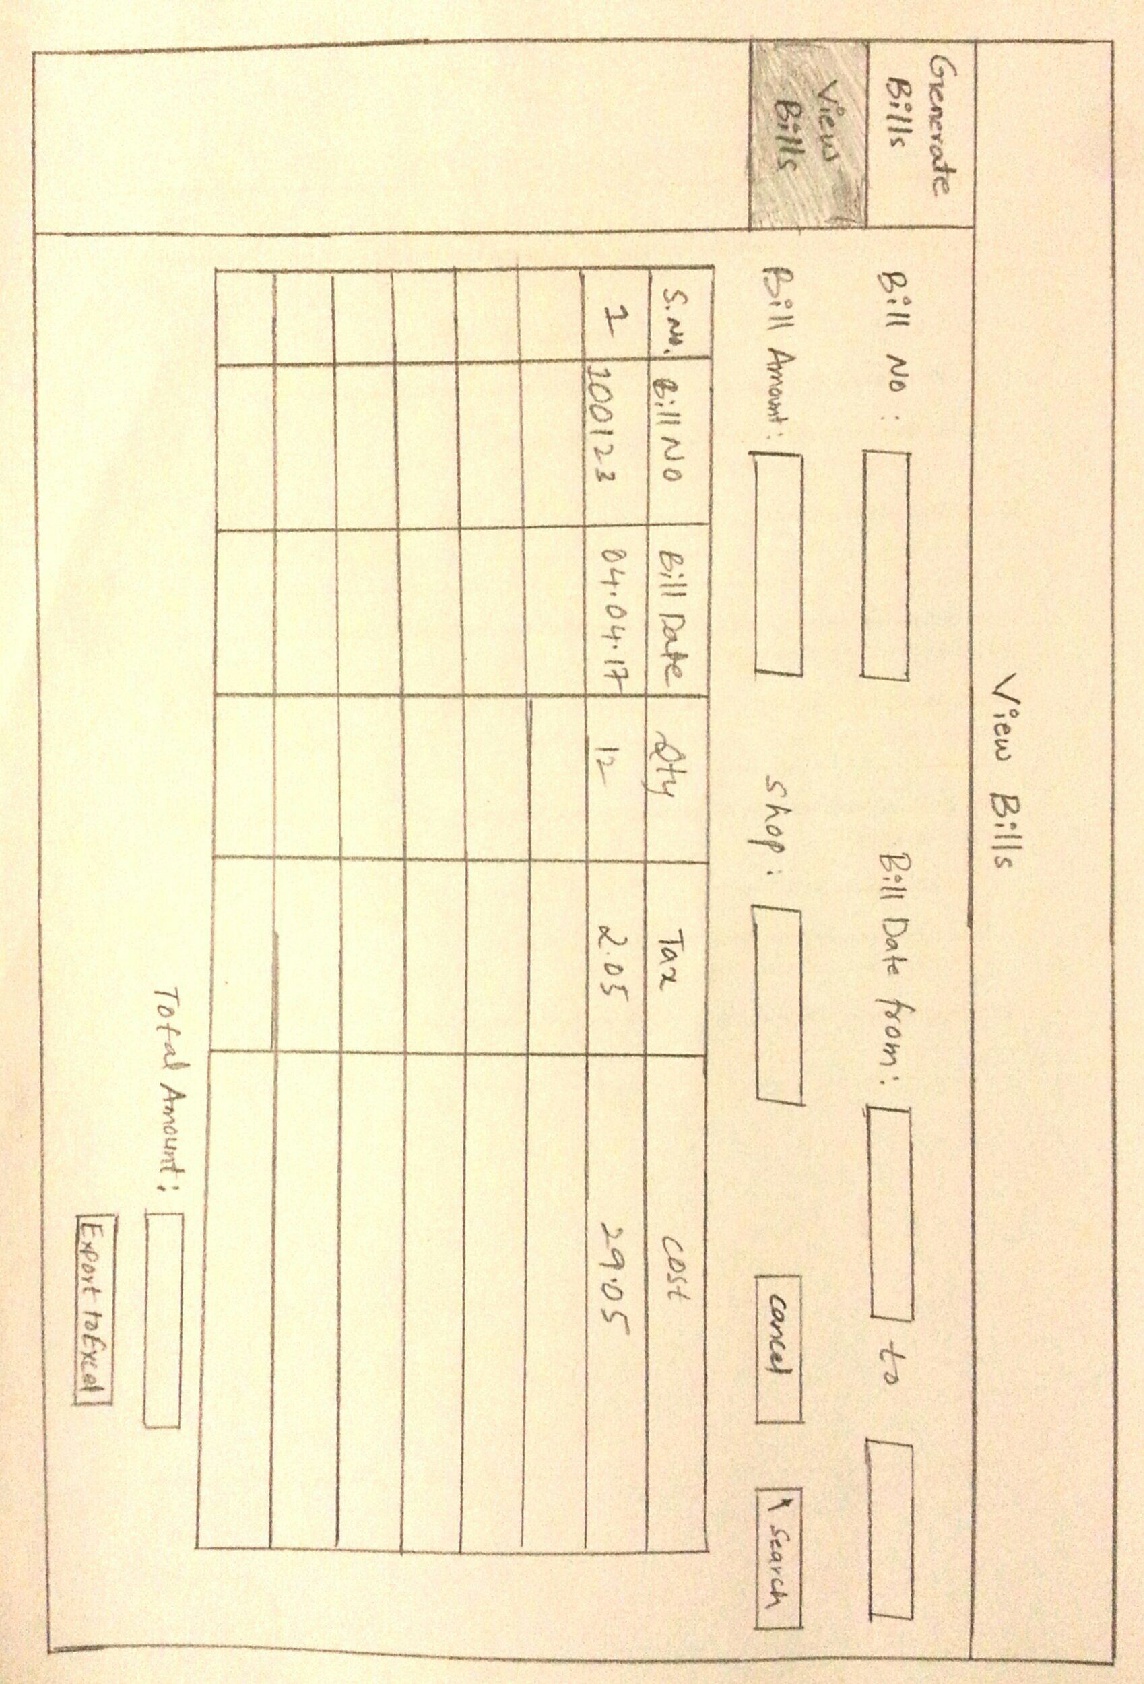 View Bills
Generate
Bills
View
Bills
Bill No :
Bill Date from :
to
Bill Amount :
Shop :
cancel
Search
S.No. Bill No Bill Date Qty Tax cost
1 100123 04.04.17 12 2.05 29.05
Total Amount :
Export to Excel